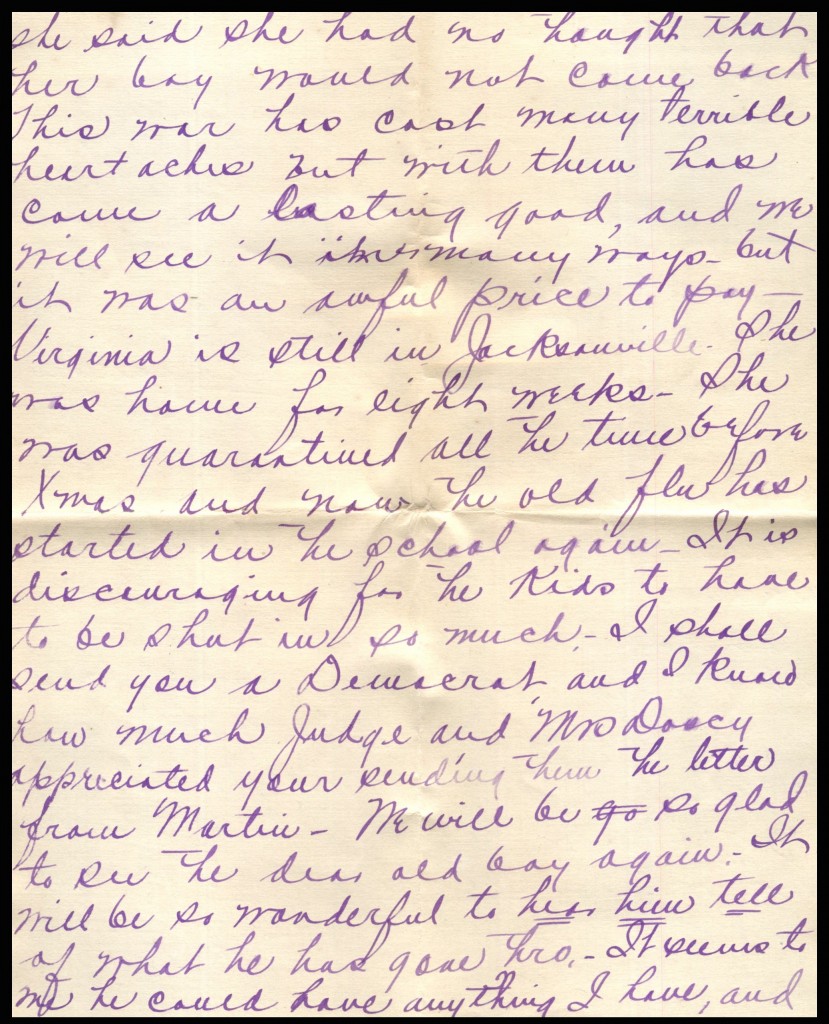 she said she had no thought that
her boy would not come back
This war has cost many terrible
heart aches but with them has
come a lasting good, and we
will see it in many ways - but
it was an awful price to pay -
Virginia is still in Jacksonville. She
was home for eight weeks - She
was quarantined all the time before
Xmas and now the old flu has
started in the school again - It is
discouraging for the Kids to have
to be shut in so much. - I shall
send you a Democrat, and I know
how much Judge and Mrs Doocy
appreciated your sending them the letter
from Martin - We will be go so glad
to see the dear old boy again. - It
will be so wonderful to hear him tell
of what he has gone thro. - It seems to
me he could have anything I have, and